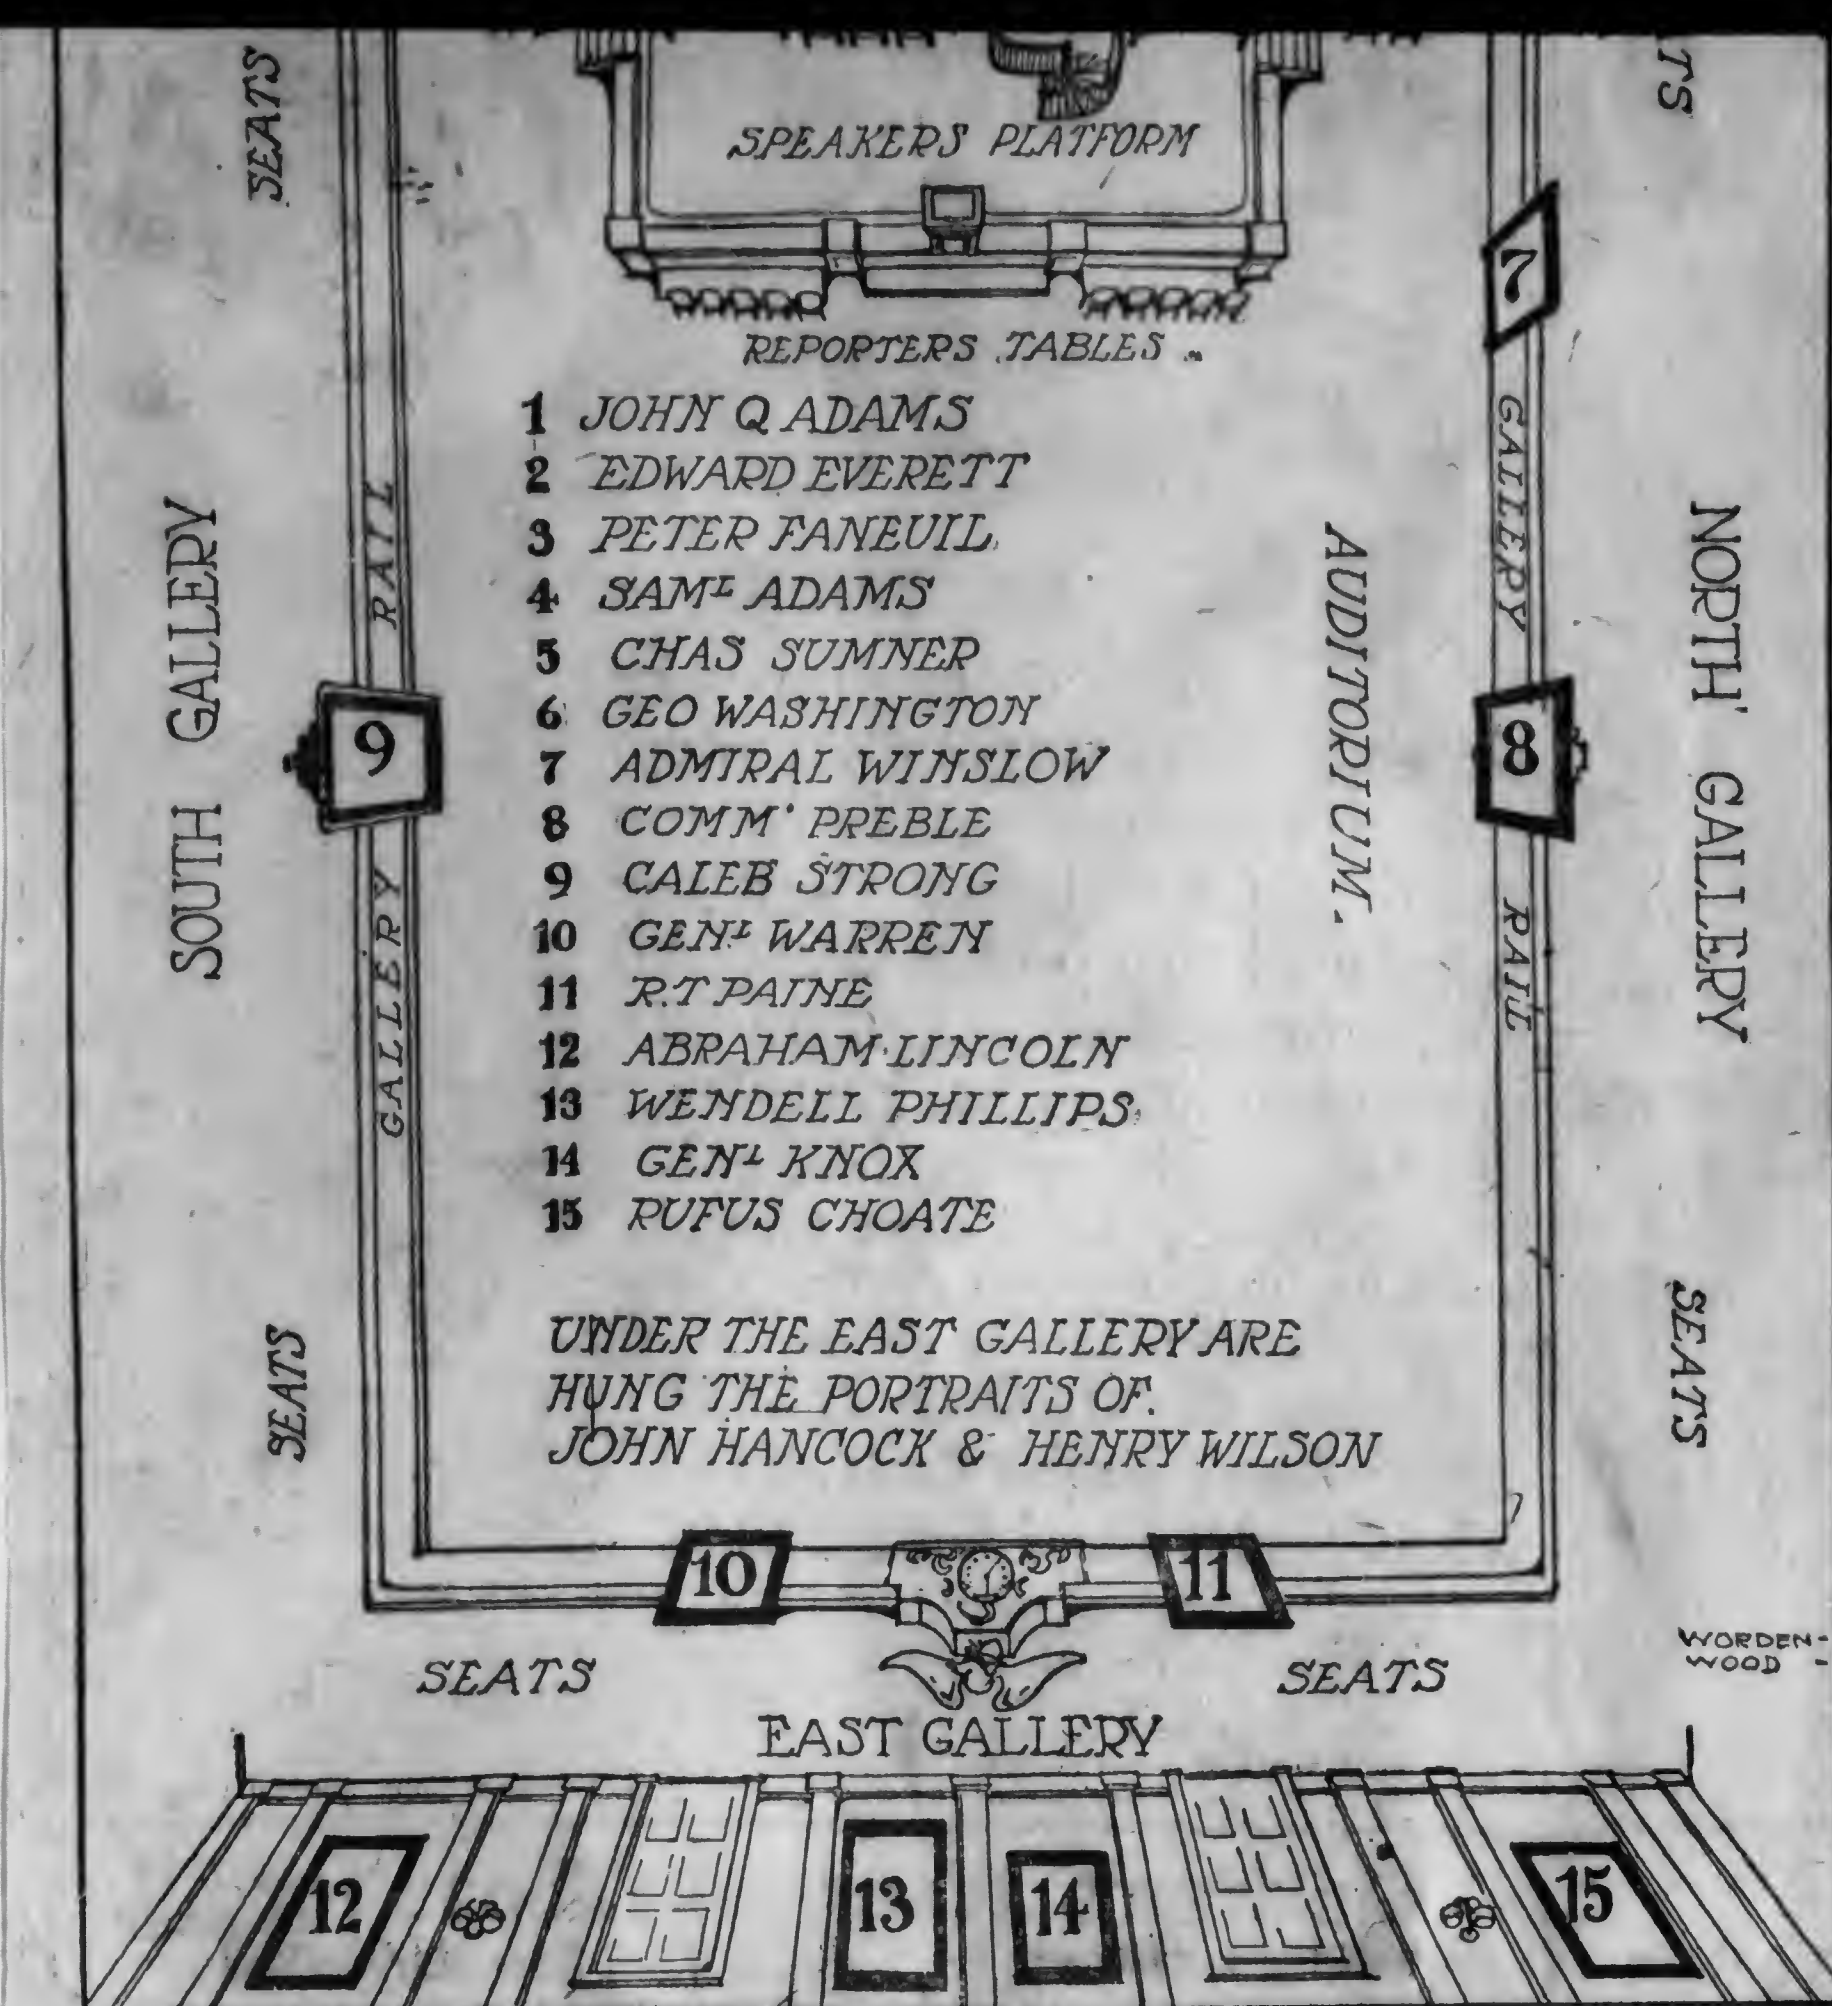 SEATS
TS
SPEAKERS PLATFORM
7
REPORTERS TABLES
1 JOHN Q ADAMS
2 EDWARD EVERETT
3 PETER FANEUIL
4 SAML ADAMS
5 CHAS SUMNER
6 GEO WASHINGTON
7 ADMIRAL WINSLOW
8 COMM' PREBLE
9 CALEB STRONG
10 GENL WARREN
11 R.T PAINE
12 ABRAHAM LINCOLN
13 WENDELL PHILLIPS
14 GENL KNOX
15 RUFUS CHOATE
SOUTH GALLERY
GALLERY RAIL
9
AUDITORIUM.
GALLERY RAIL
8
NORTH GALLERY
SEATS
SEATS
UNDER THE EAST GALLERY ARE
HUNG THE PORTRAITS OF.
JOHN HANCOCK & HENRY WILSON
10
11
SEATS
SEATS
WORDEN-
WOOD -
EAST GALLERY
12
13
14
15